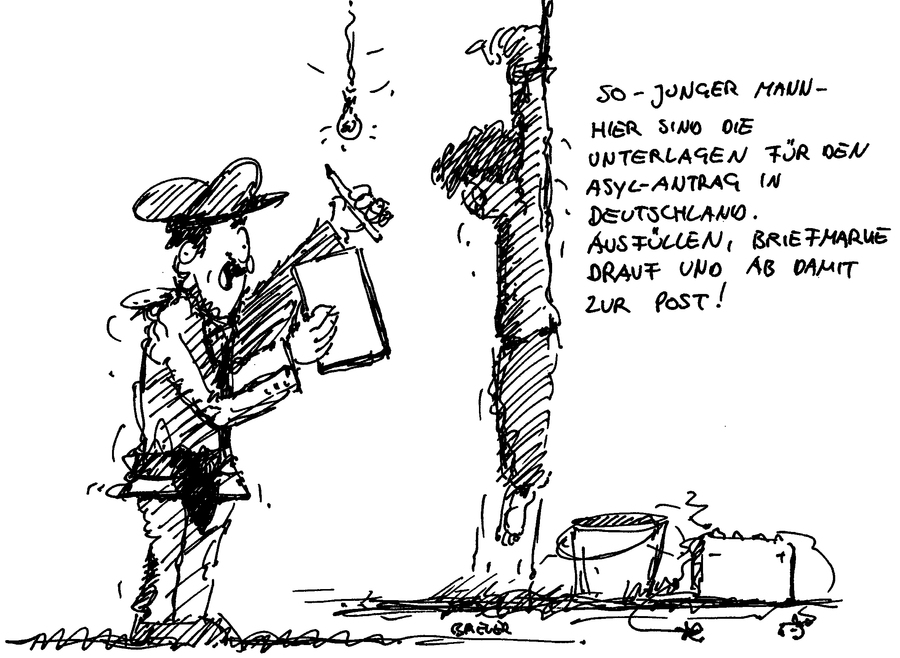 SO - JUNGER MANN -
HIER SIND DIE
UNTERLAGEN FÜR DEN
ASYL-ANTRAG IN
DEUTSCHLAND.
AUSFÜLLEN, BRIEFMARKE
DRAUF UND AB DAMIT
ZUR POST!
- +